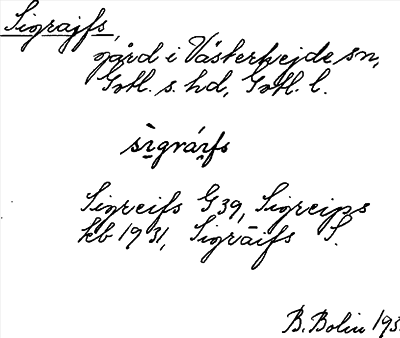 Sigrajfs,
gård i Västerhejde sn,
Gotl. s. hd, Gotl. l.
Sigreifs G 39, Sigreips
kb 1931, Sigräifs S.
B. Bolin 193